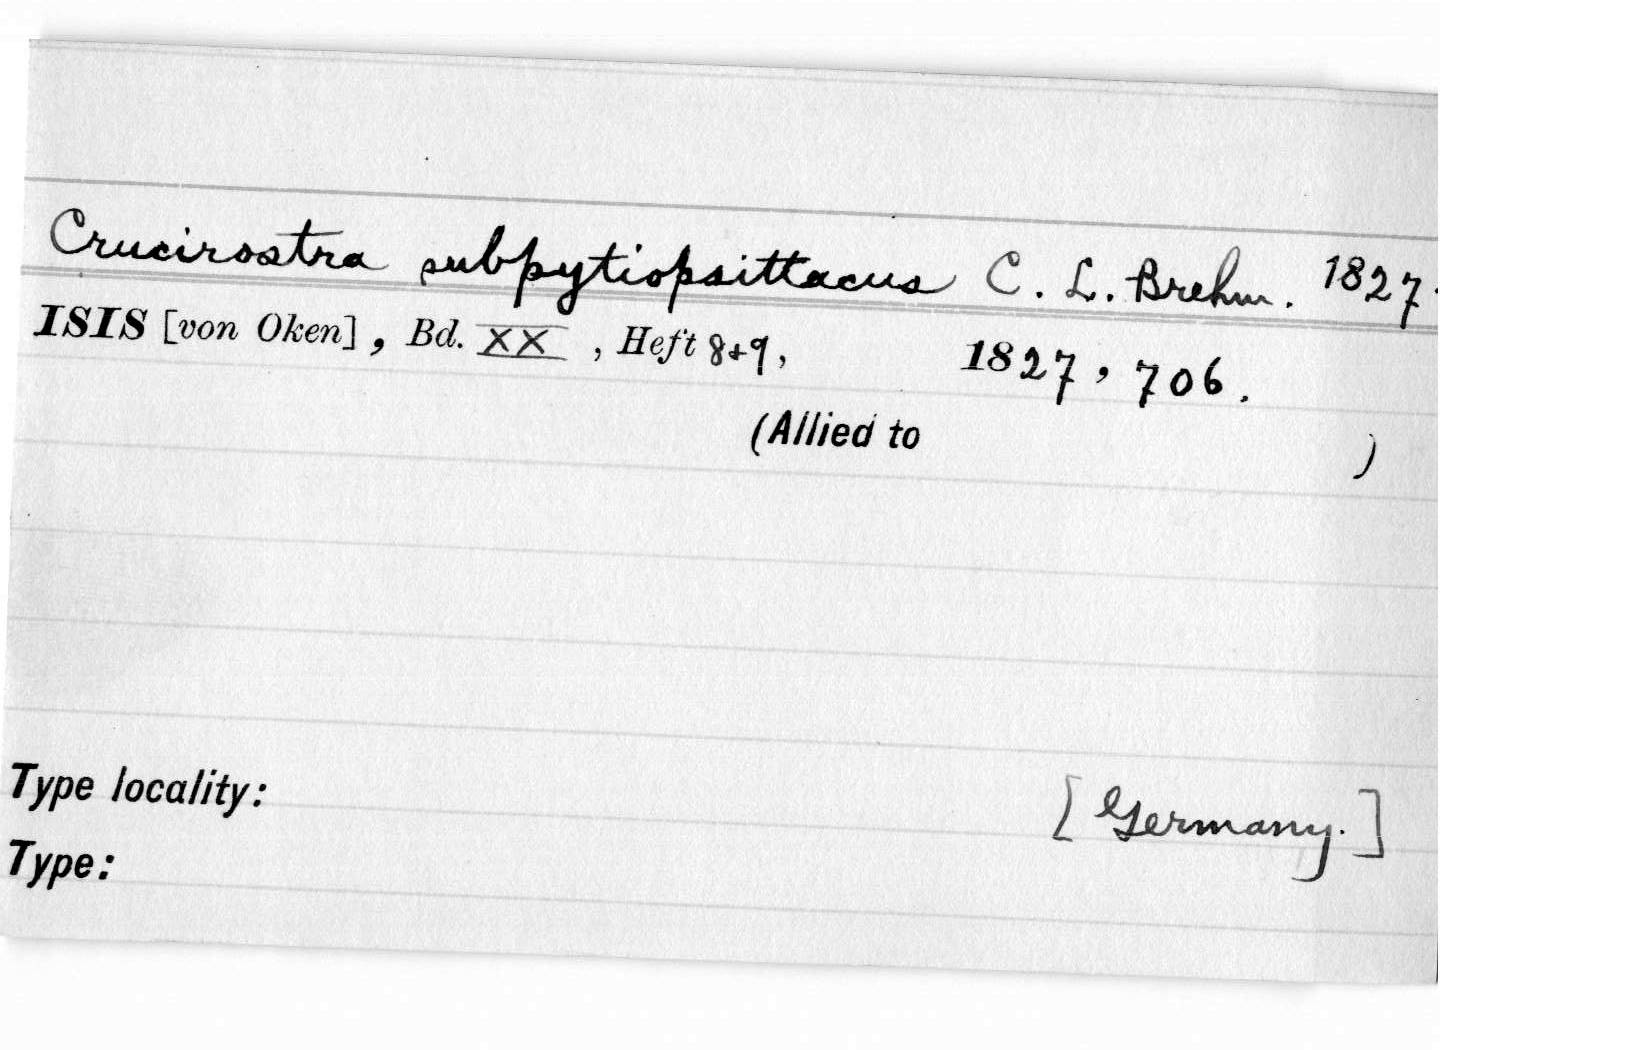 Crucirostra subpytiopsittacus C. L. Brehm. 1827.
ISIS [von Oken], Bd. XX, Heft 8+9, 1827, 706.
(Allied to )
Type locality: [Germany.]
Type: